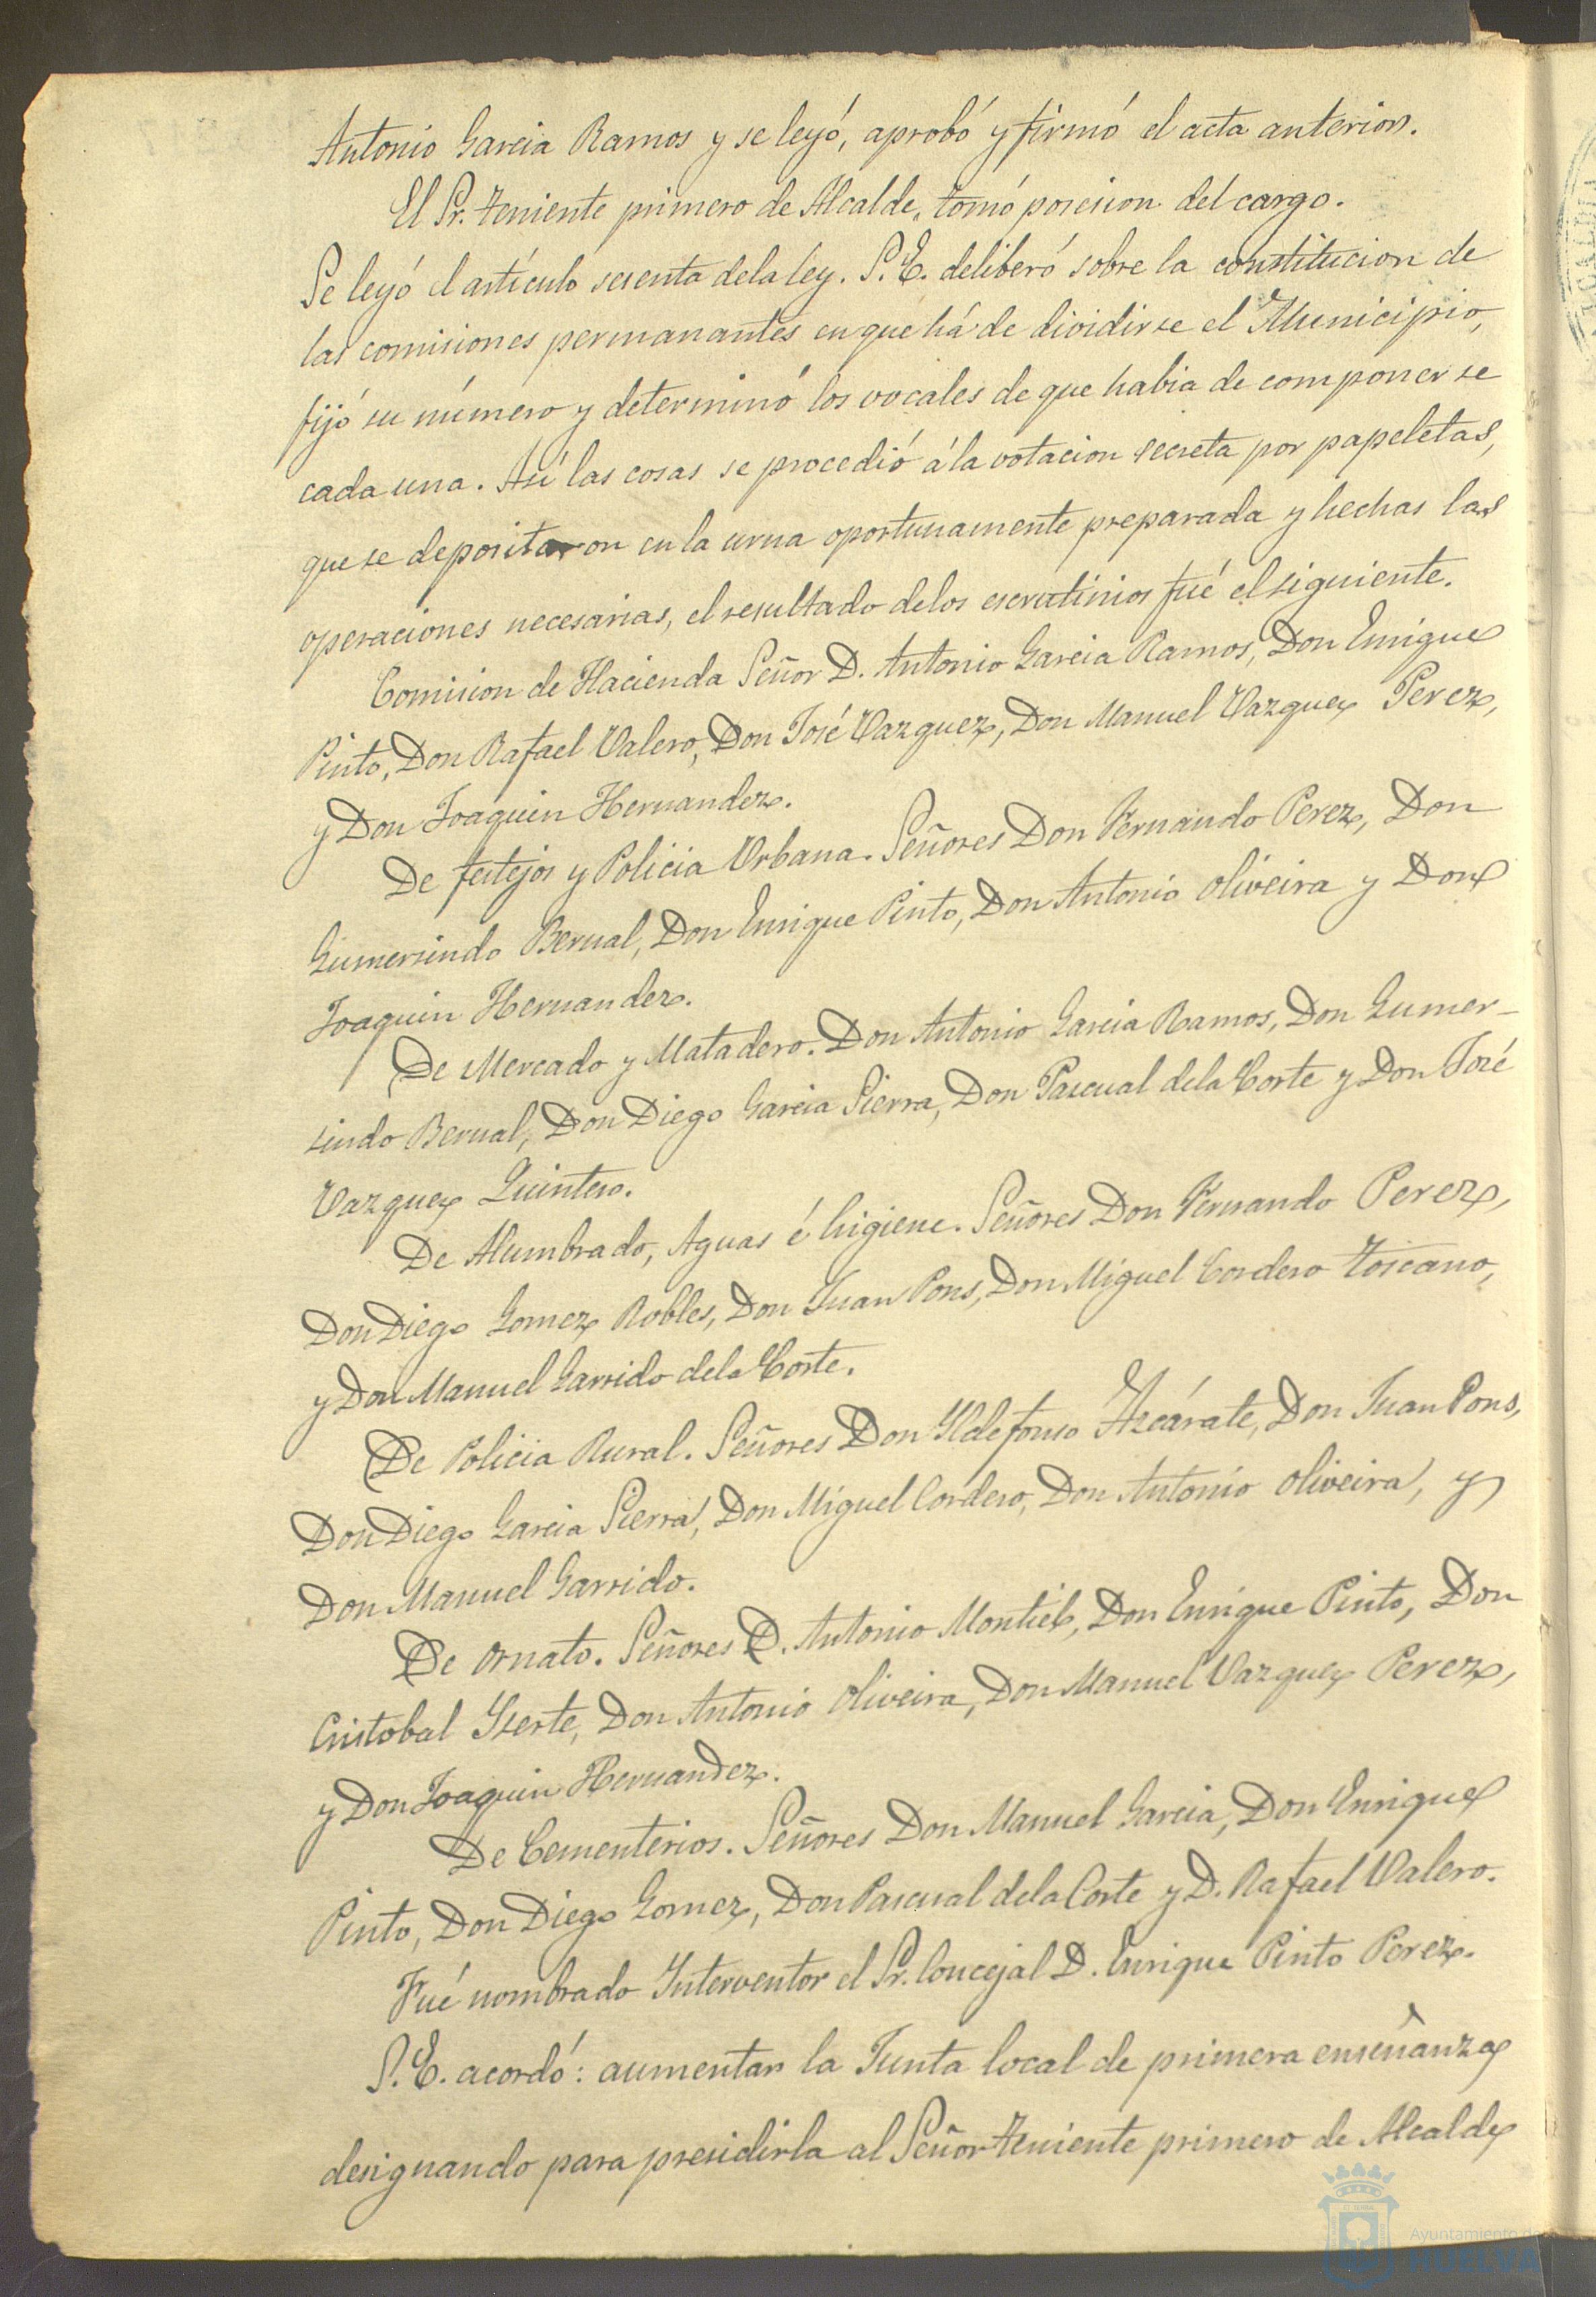 Antonio Garcia Ramos y se leyó, aprobó y firmó el acta anterior.
El Sr. teniente primero de Alcalde, tomó posesion del cargo.
Se leyó el artículo sesenta de la ley. S.E. deliberó sobre la constitucion de
las comisiones permanantes en que há de dividirse el Municipio,
fijó su número y determinó los vocales de que habia de componerse
cada una. Así las cosas se procedió á la votacion secreta por papeletas,
que se depositaron en la urna oportunamente preparada y hechas las
operaciones necesarias, el resultado de los escrutinios fué el siguiente.
Comision de Hacienda Señor D. Antonio Garcia Ramos, Don Enrique
Pinto, Don Rafael Valero, Don José Vazquez, Don Manuel Vazquez Perez,
y Don Joaquin Hernandez.
De festejos y Policia Urbana. Señores Don Fernando Perez, Don
Gumersindo Bernal, Don Enrique Pinto, Don Antonio Oliveira y Don
Joaquin Hernandez.
De Mercado y Matadero. Don Antonio Garcia Ramos, Don Gumer-
sindo Bernal, Don Diego Garcia Sierra, Don Pascual de la Corte y Don José
Vazquez Quintero.
De Alumbrado, Aguas é higiene. Señores Don Fernando Perez,
Don Diego Gomez Robles, Don Juan Pons, Don Miguel Cordero Toscano,
y Don Manuel Garrido de la Corte.
De Policia Rural. Señores Don Yldefonso Azcárate, Don Juan Pons,
Don Diego Garcia Sierra, Don Miguel Cordero, Don Antonio Oliveira, y
Don Manuel Garrido.
De Ornato. Señores D. Antonio Montiel, Don Enrique Pinto, Don
Cristobal Yserte, Don Antonio Oliveira, Don Manuel Vazquez Perez,
y Don Joaquin Hernandez.
De Cementerios. Señores Don Manuel Garcia, Don Enrique
Pinto, Don Diego Gomez, Don Pascual de la Corte y D. Rafael Valero.
Fué nombrado Interventor el Sr. Concejal D. Enrique Pinto Perez.
S.E. acordó: aumentar la Junta local de primera enseñanza
designando para presidirla al Señor teniente primero de Alcalde
Ayuntamiento de
HUELVA